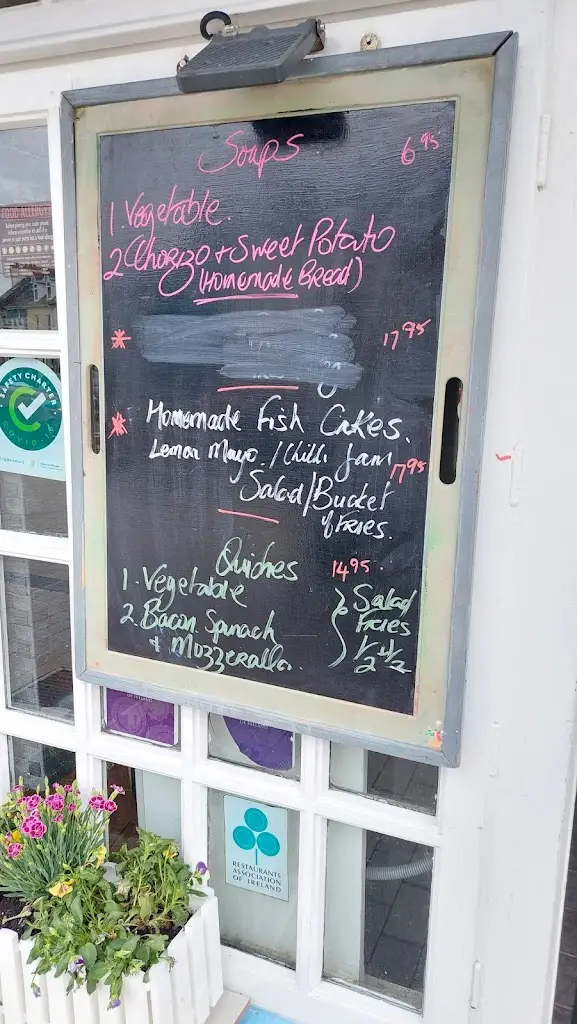 Soups 6.95
1. Vegetable.
2 Chorizo + Sweet Potato
(Homemade Bread)
* 17.95
* Homemade Fish Cakes.
Lemon Mayo. / Chilli Jam 17.95
Salad/Bucket
of Fries.
Quiches 14.95.
1. Vegetable
2. Bacon Spinach
+ Mozzeralla.
Salad
Fries
1/2 1/2
FOOD ALLERGY
SAFETY CHARTER
COVID-19
OF IRELAND
OF IRELAND
RESTAURANTS
ASSOCIATION
OF IRELAND